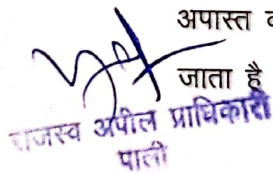 अपास्त
जाता है
राजस्व अपील प्राधिकारी
पाली